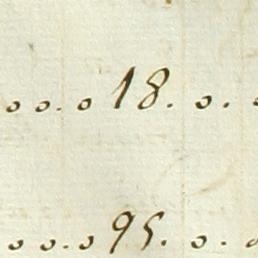 o o . o 18 . o . o
o o . o 95 . o . o